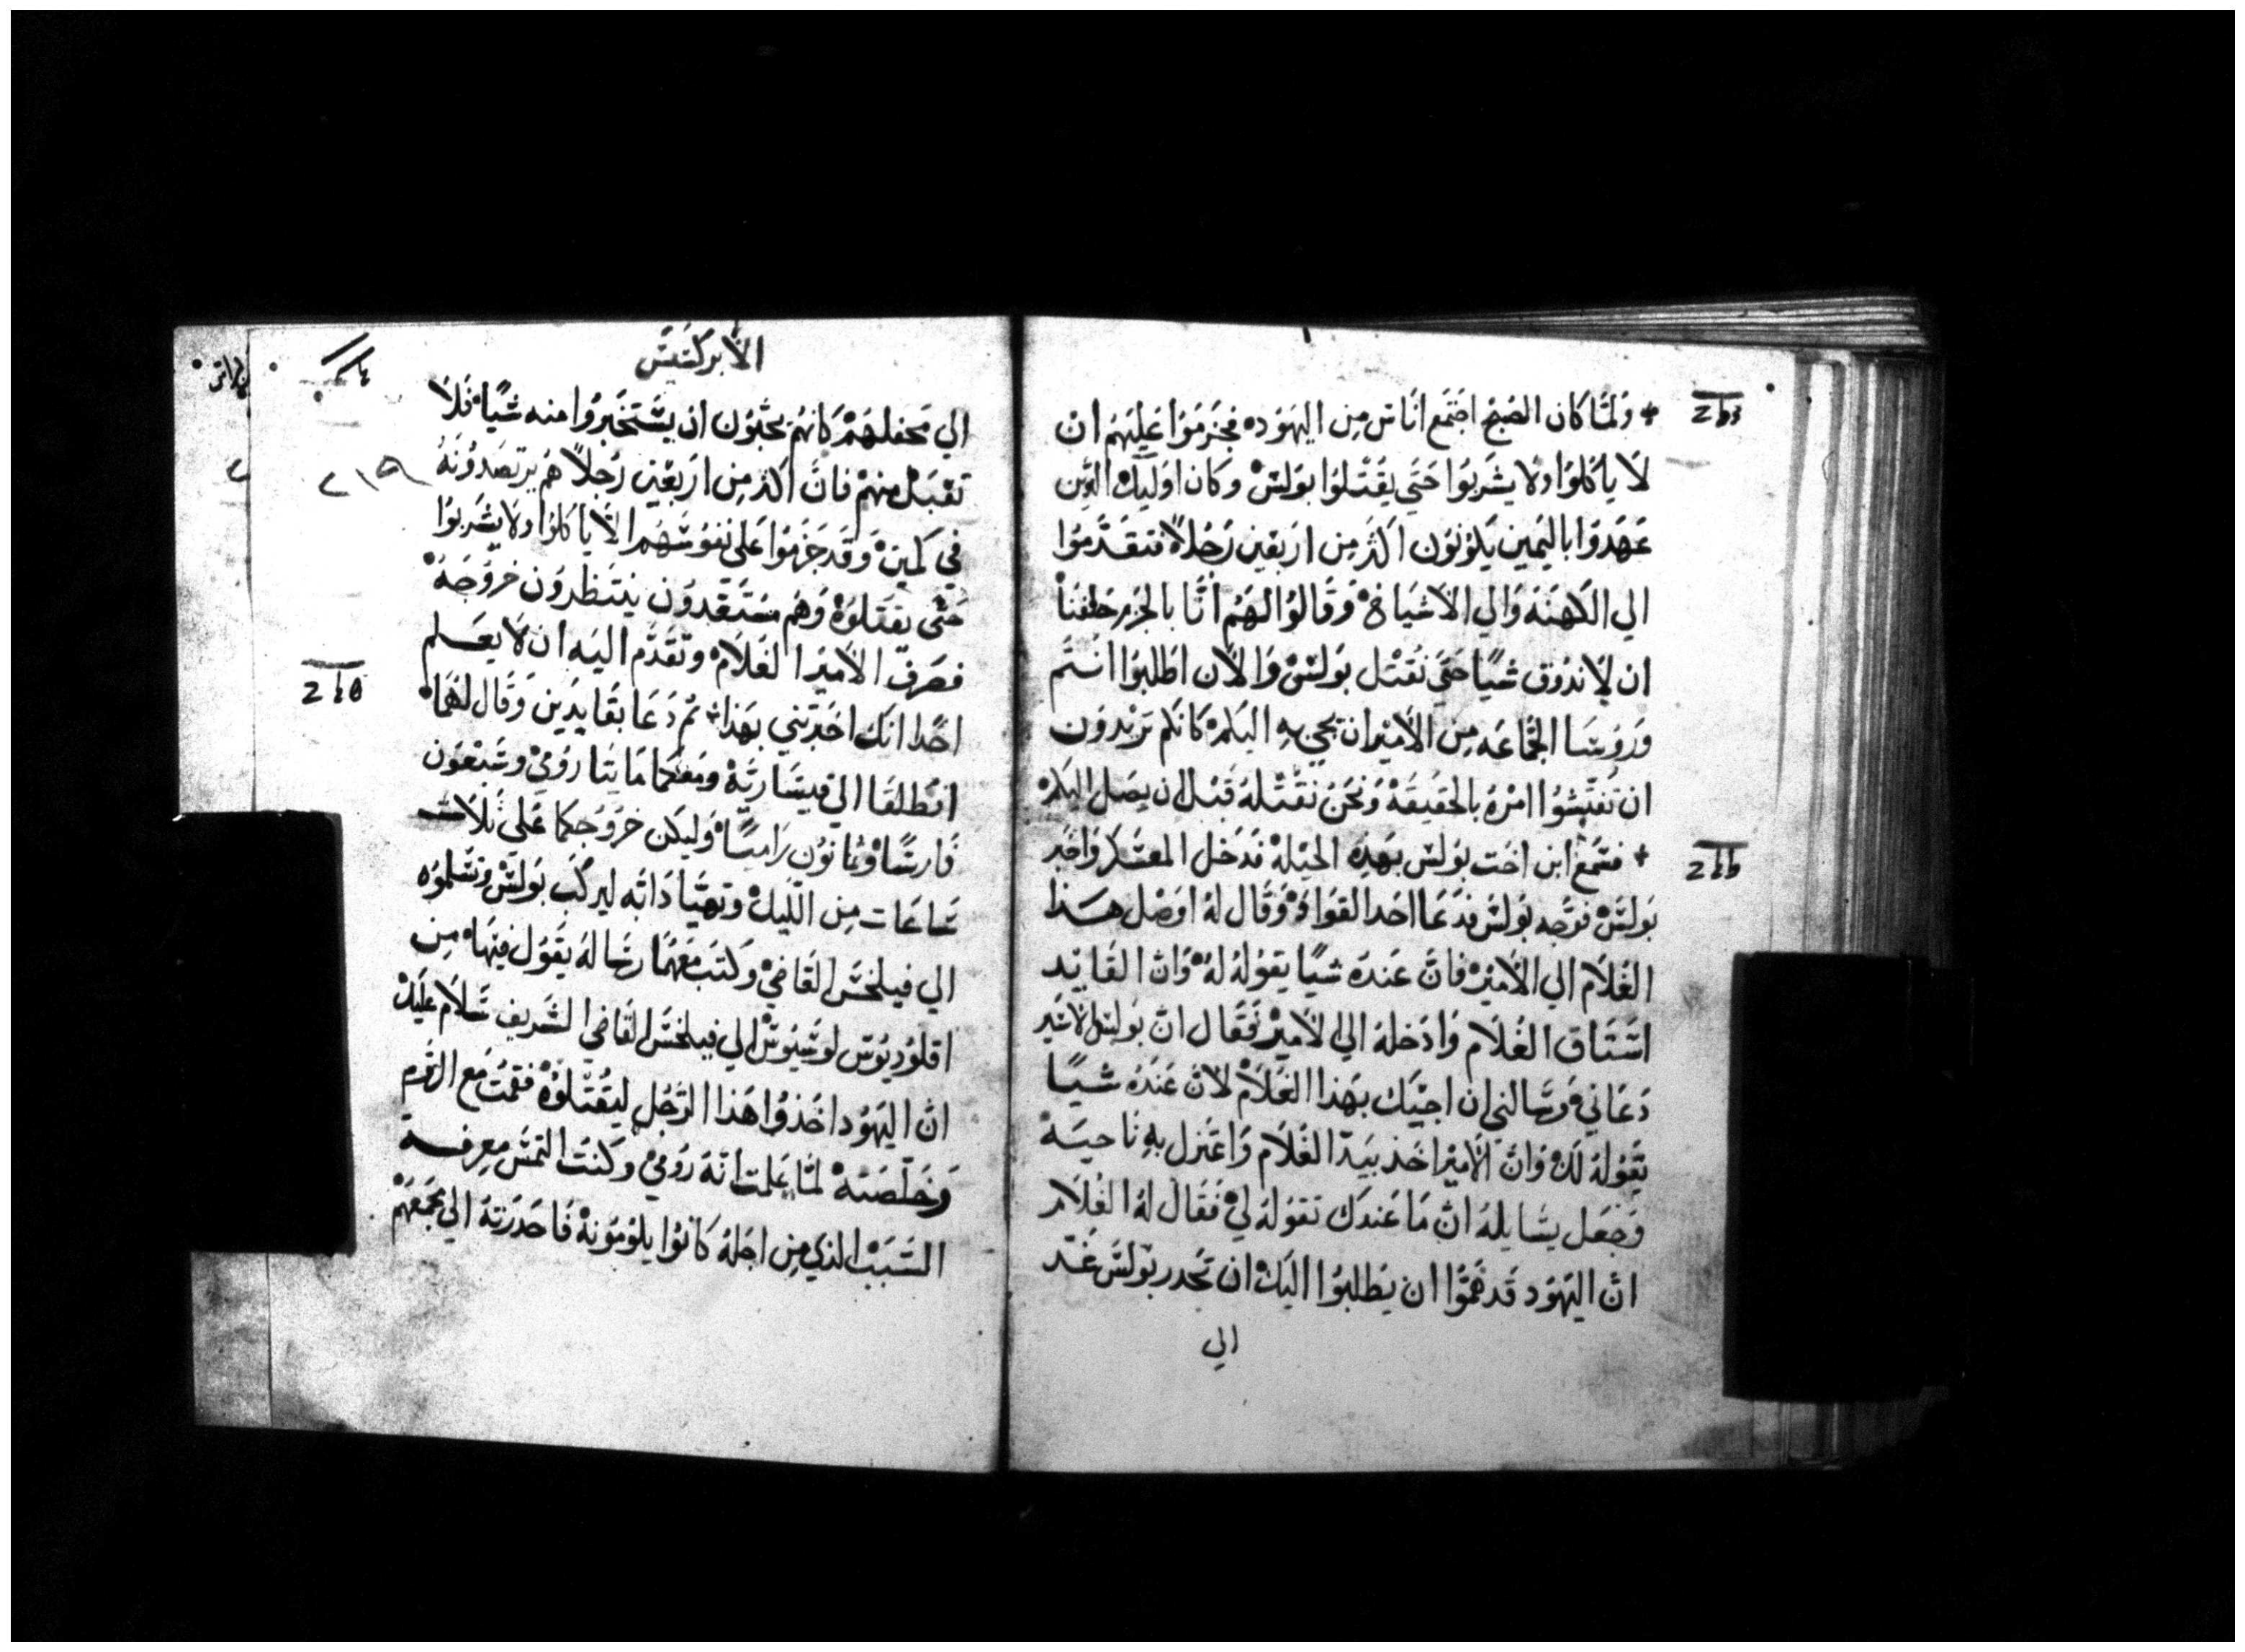 + وَلمَّا كان الصُبحُ اجتمَع انَاسٌ مِن اليَهُود فجزمَوُا عَليهُم ان
لَا ياكلوُا ولا يشَربوُا حَتَي يَقتُلوُا بوَلسَ وكان اوليَك الدِين
عَهدَوُا باليَمِين يَكونوُن اكثرَ مِن اربعَين رَجُلاً فتقدَموُا
الي الكَهنَة وَالي الاشيَاخ وَقَالوُا لهَم انّا بالجزم حَلفنَا
ان لا ندوَق شيًا حَتي نَقتُل بوَلسَ وَالان اطلبوُا انتُم
وَروسَا الجمَاعَه مِن الاميَر ان يجي به اليَكم كانكم ترَيدوَن
ان تفتشوُا امرَهُ بالحقيقَة وَنحنُ نقتُلهُ قَبل ان يصَل اليَكم
+ فسَمعَ ابن اخَت بوُلسَ بهَذِه الحيَلة فدَخل المعسَكر وَاخبَر
بوَلسَ فوَجه بوُلسَ فدَعَا احَد القوَاد وَقَال لهُ اوصَل هَذا
الغُلَام الي الاميَر فانَ عَندَه شيًا يقوُلهُ لهُ وَان القَايَد
استَاق الغُلَام وَادخلهُ الي الاميَر فقَال انّ بوَلسَ الاسَير
دَعَاني وَسَالني ان اجيَك بهَذا الغَلَام لانّ عَندُه شيًا
يَقوُلهُ لكَ وَانّ الاميَر اخَذ بيَد الغُلَام وَاعَتزل بهِ نَاحيَة
وَجعَل يسَايلهُ انّ مَا عَندَك تقوُلهُ لي فَقَال لهُ الغُلَام
انّ اليَهوُد قَد همّوُا ان يَطلبوُا اليَك ان تحَدر بوَلسَ غَد
الي
الابركسَيسَ
الي محَفلهَم كانهُم يحبّوُن ان يسَتخبروُا منه شيًا فَلَا
تقبَل منهم فانَ اكثر مِن اربَعيَن رَجُلاً هُم يرتصَدوُنهُ
في كمَين وَقَد جزَموُا عَلى نفوُسَهُم الّا ياكلوُا ولا يشَربوُا
حَتى يقتَلوُه وَهُم مسَتَعَدوُن ينتَظروُن خروُجَهُ
فصَرفَ الاميَر الغَلَام وتقَدّم اليَه ان لَا يعَلم
احَدًا انك اخبَرتني بهَذا ثم دَعَا بقَايدَين وَقَال لهَمَا
انطلقَا الي قيسَاريّة ومَعَكما مَايتَا روُمي وسَبَعوُن
فَارسًا وثمانوُن رَاميًا وَليَكن خروُجكما عَلي ثلَاث
سَاعَات مِن اللّيَل وتهيّا دَابَه ليركبَ بوَلسَ وتسَلموُه
الي فيلخسَ القَاضي وَكتبَ مَعَهُما رسَالهُ يَقوُل فيَها مِن
اقلوُديوُس لوسَيوُس الي فيلخسَ القَاضي الشَريف سَلَام عَليَك
انّ اليَهوُد اخَذوُا هَذا الرَجُل ليَقتُلوُه فقمتُ مَع الرّوم
وَخَلّصَتهُ لمّا عَلمت انّه روُمي وَكنتُ التمسَ مَعِرفة
السَببَ الذي مِن اجَلهُ كانوُا يلوُموُنهُ فَاحَدرَتهُ الي مجمَعَهُم
٢١٩